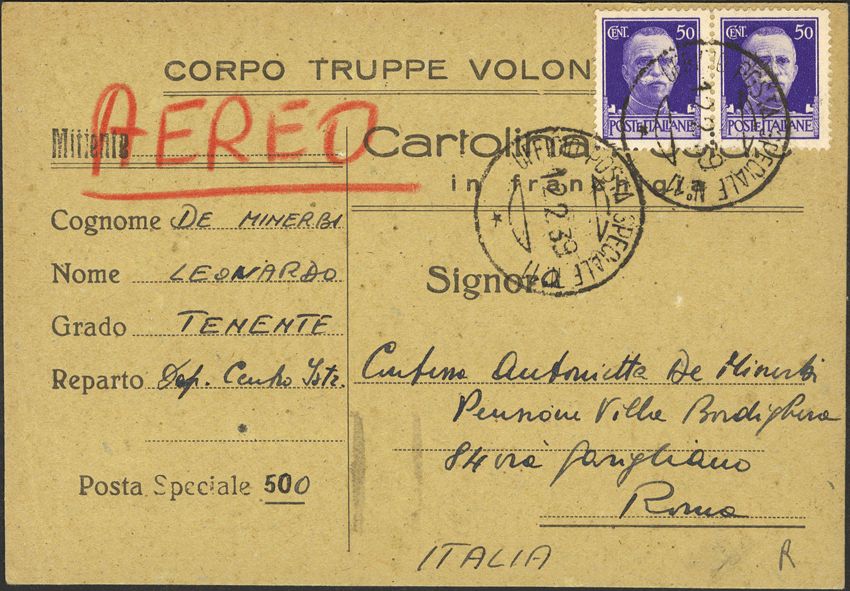 CORPO TRUPPE VOLON
CENT. 50
POSTE ITALIANE
CENT. 50
POSTE ITALIANE
AEREO
Mittente
Cartolina
in franchigia
UFFICIO POSTA SPECIALE N° 11
12.2.39
UFFICIO POSTA SPECIALE N° 11
12.2.39
Cognome DE MINERBI
Nome LEONARDO
Grado TENENTE
Reparto Dep. Centro Istr.
Posta Speciale 500
Signora
Contessa Antonietta De Minerbi
Pensione Villa Bordighera
84 via Garigliano
Roma
ITALIA
R